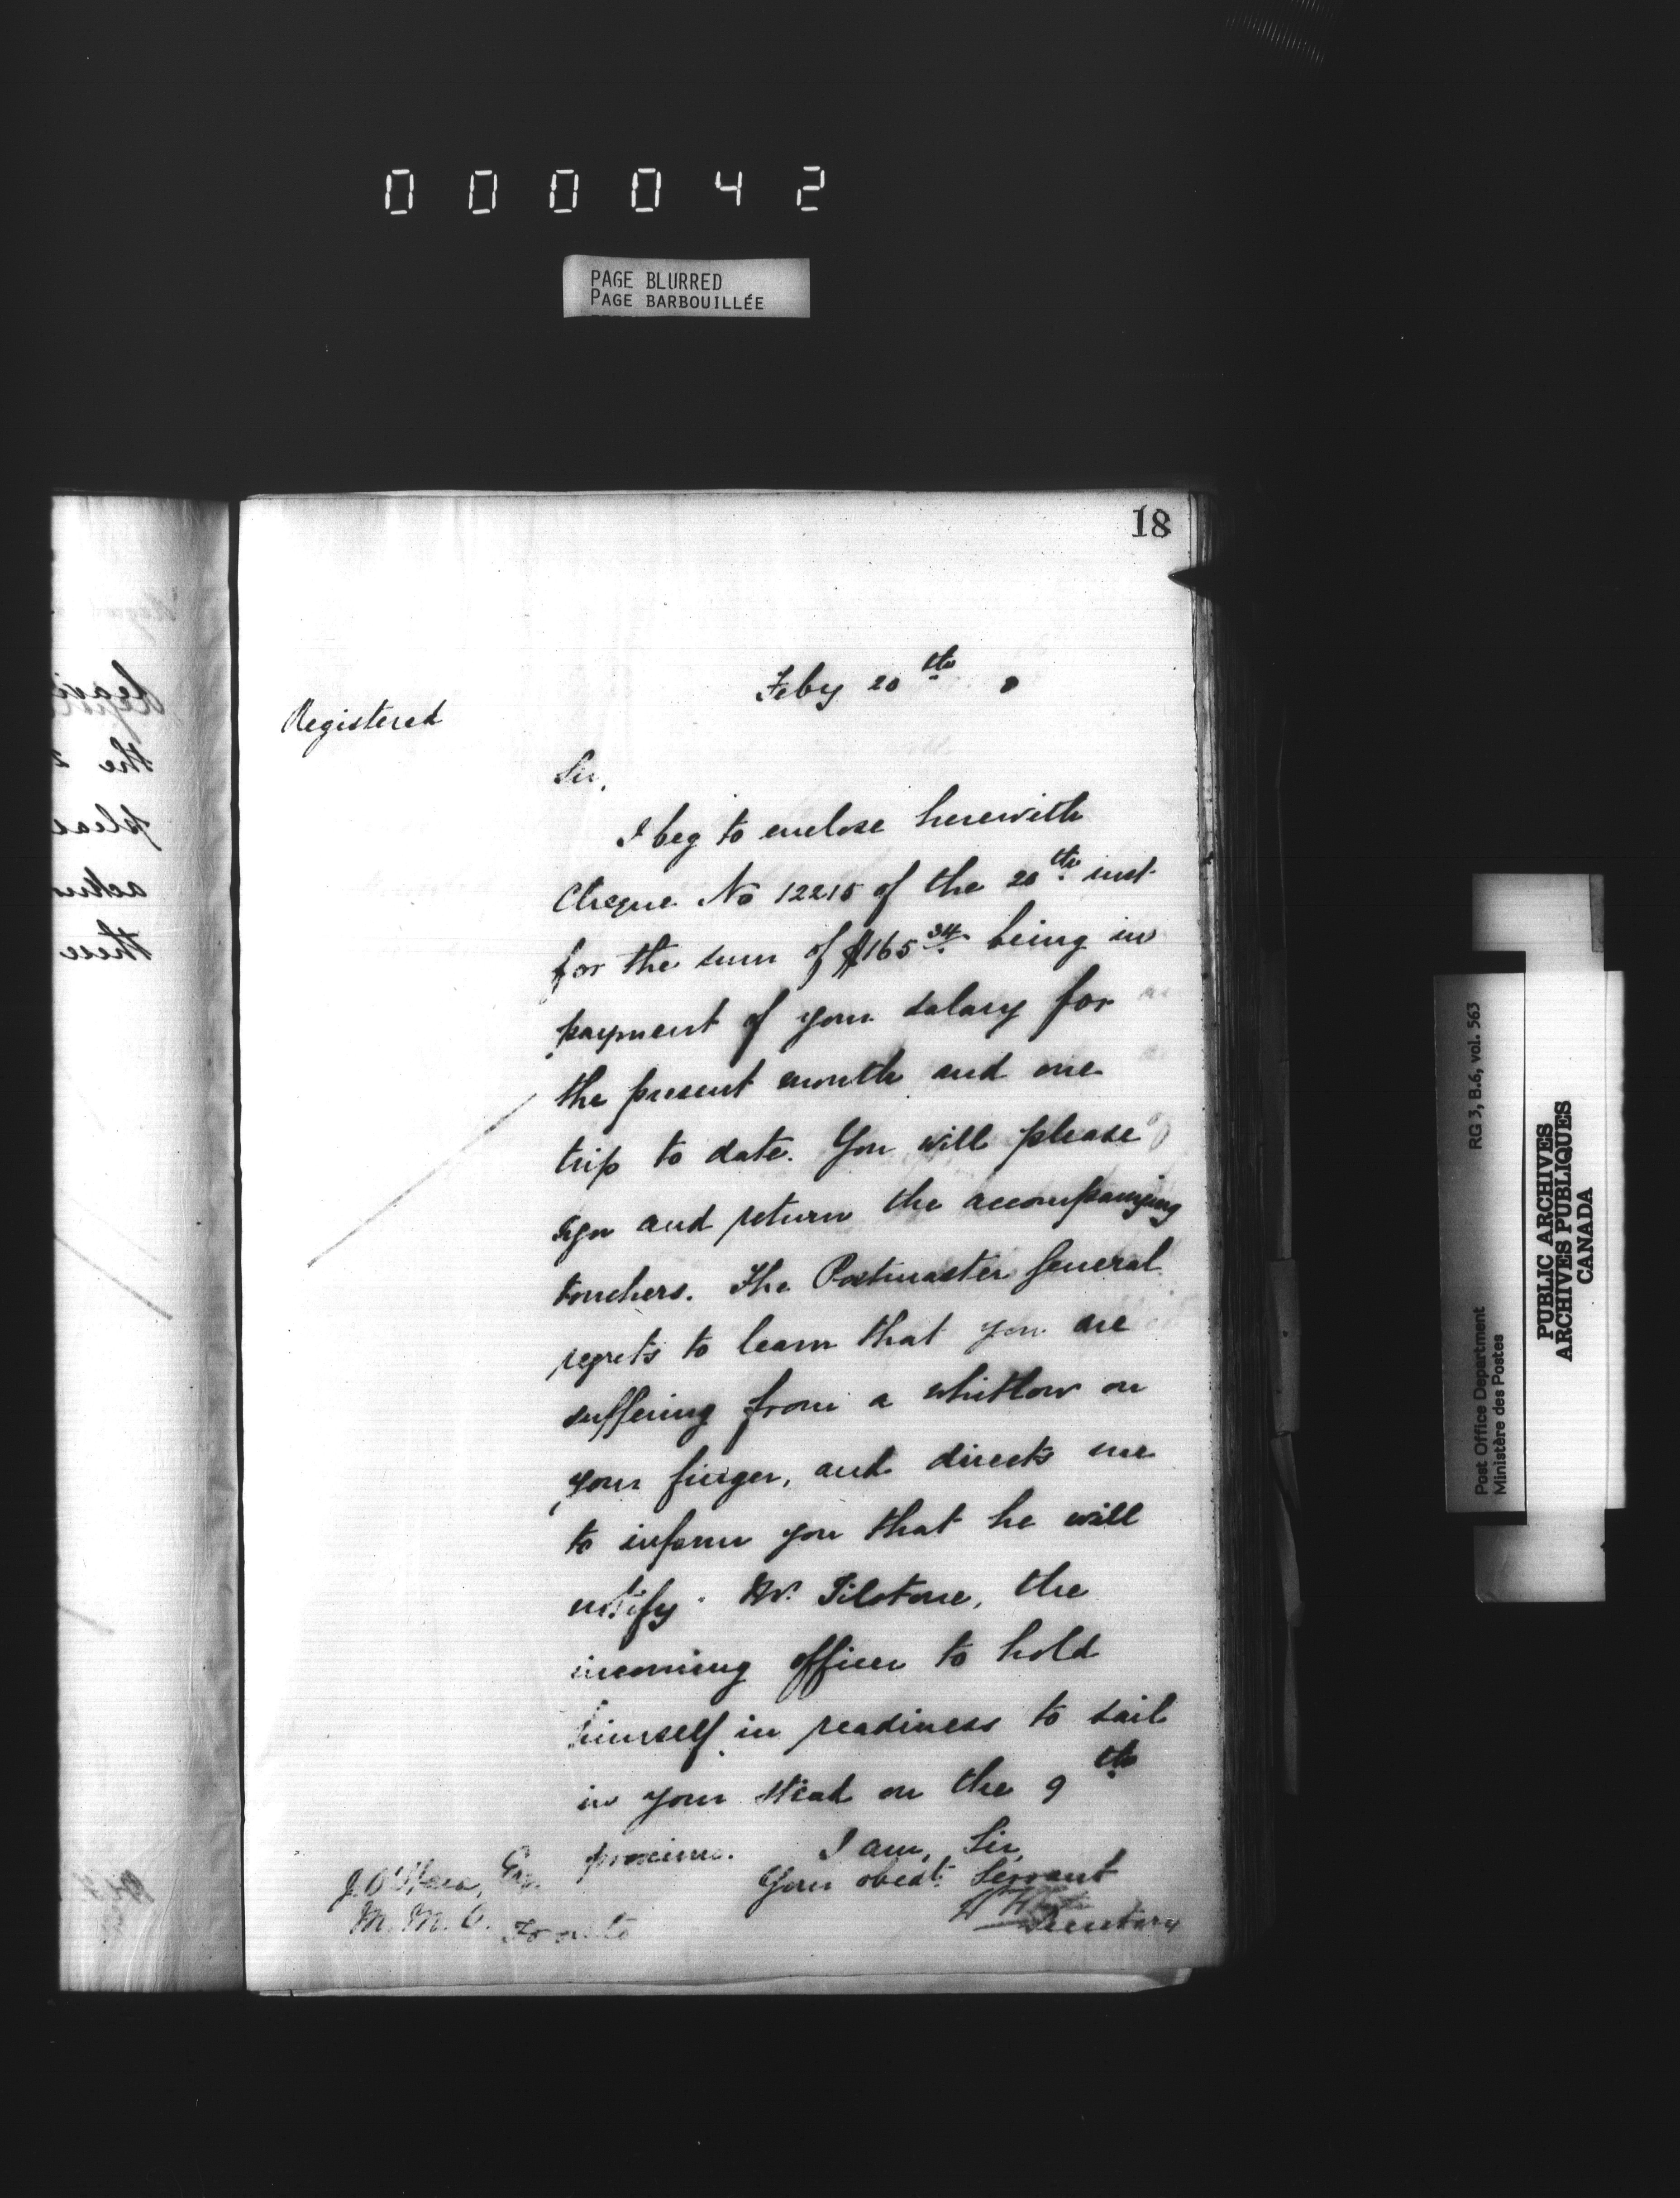 000042
PAGE BLURRED
PAGE BARBOUILLÉE
18
Feby 20th
Registered
Sir,
I beg to enclose herewith
Cheque No 12215 of the 20th inst
for the sum of $165 34 being in
payment of your salary for
the present month and one
trip to date. You will please
sign and return the accompanying
vouchers. The Postmaster General
regrets to learn that you are
suffering from a whitlow on
your finger, and directs me
to inform you that he will
notify Mr. Tilstone, the
incoming officer to hold
himself in readiness to sail
in your stead on the 9th
proximo. I am, Sir,
Your obedt. Servant
Secretary
J. O'Hara, Esq
M. M. O. Toronto
the 2
pleas
these
Post Office Department
Ministère des Postes
RG 3, B.6, vol. 563
PUBLIC ARCHIVES
ARCHIVES PUBLIQUES
CANADA